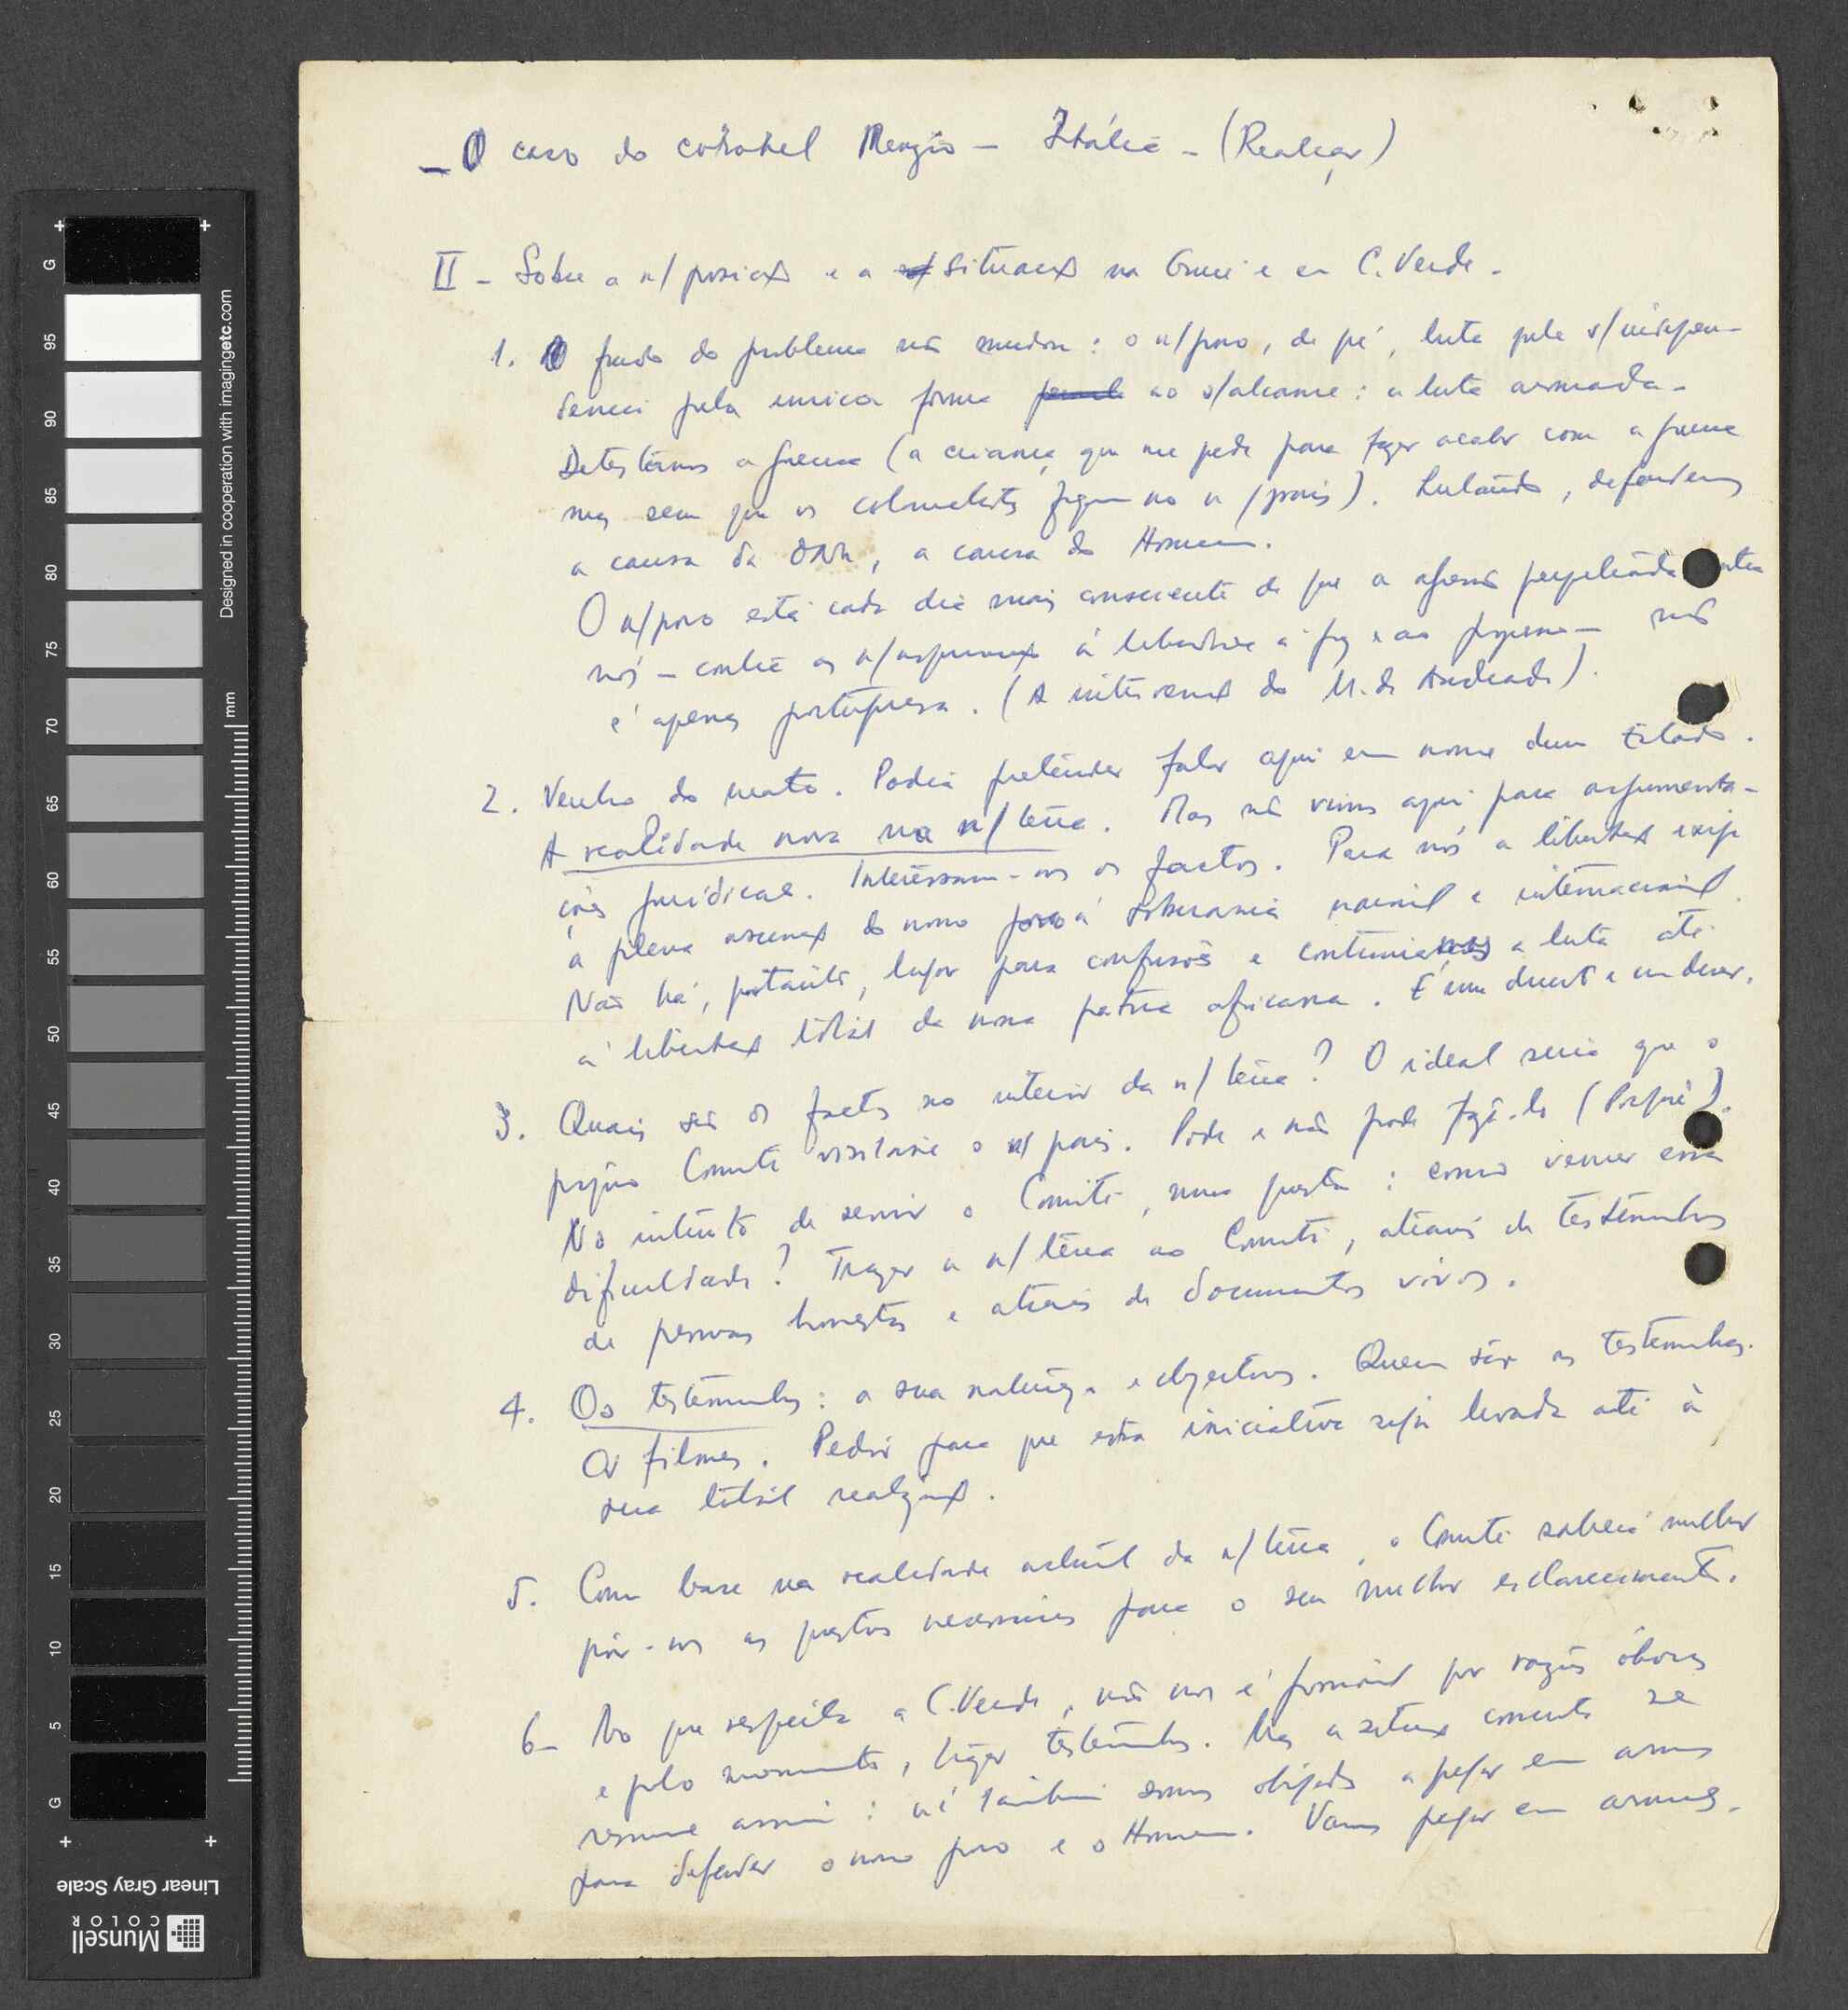 - O caso do coronel - Itália - (Realçar)
II - Sobre a n/ posição e a situação na Guiné e em C. Verde.
1. O fundo do problema não mudou: o n/povo, de pé, luta pela s/ indepen-
dência pela única forma ao s/alcance: a luta armada.
Detestamos a guerra (a criança que me pede para fazer acabar com a guerra
mas sem que os colonialistas fiquem no n/país). Lutando, defendemos
a causa da ONU, a causa do Homem.
O n/povo está cada dia mais consciente de que a agressão perpetrada
nós - contra as n/aspirações à liberdade à paz e ao progresso - não
é apenas portuguesa. (A intervenção do M. de Andrade).
2. Venho do mato. Podia pretender falar aqui em nome dum Estado.
A realidade nova na n/terra. Mas não vimos aqui para argumenta-
ções jurídicas. Interessam-nos os factos. Para nós a libertação exige
a plena ascensão do nosso povo à soberania nacional e internacional.
Não há, portanto, lugar para confusões e continuamos a luta até
à libertação total da nossa pátria africana. É um direito e um dever.
3. Quais são os factos no interior da n/terra? O ideal seria que o
próprio Comité visitasse o n/ país. Pode e não pode fazê-lo (Porquê).
No intuito de servir o Comité, uma questão: como vencer essa
dificuldade? Trazer a n/terra ao Comité, através de testemunhos
de pessoas honestas e através de documentos vivos.
4. Os testemunhos: a sua natureza e objectivos. Quem são as testemunhas.
Os filmes. Pedir para que esta iniciativa seja levada até à
sua total realização.
5. Com base na realidade actual da n/terra, o Comité saberá melhor
pôr-nos as questões necessárias para o seu melhor esclarecimento.
6- No que respeita a C. Verde, não nos é possível por razões óbvias
e pelo momento, trazer testemunhos. Mas a situação concreta se
resume assim: aí também somos obrigados a pegar em armas
para defender o nosso povo e o Homem. Vamos pegar em armas.
Designed in cooperation with imagingetc.com
mm
G
95
90
85
80
75
70
65
60
55
50
45
40
35
30
25
20
15
10
5
G
Linear Gray Scale
Munsell
COLOR